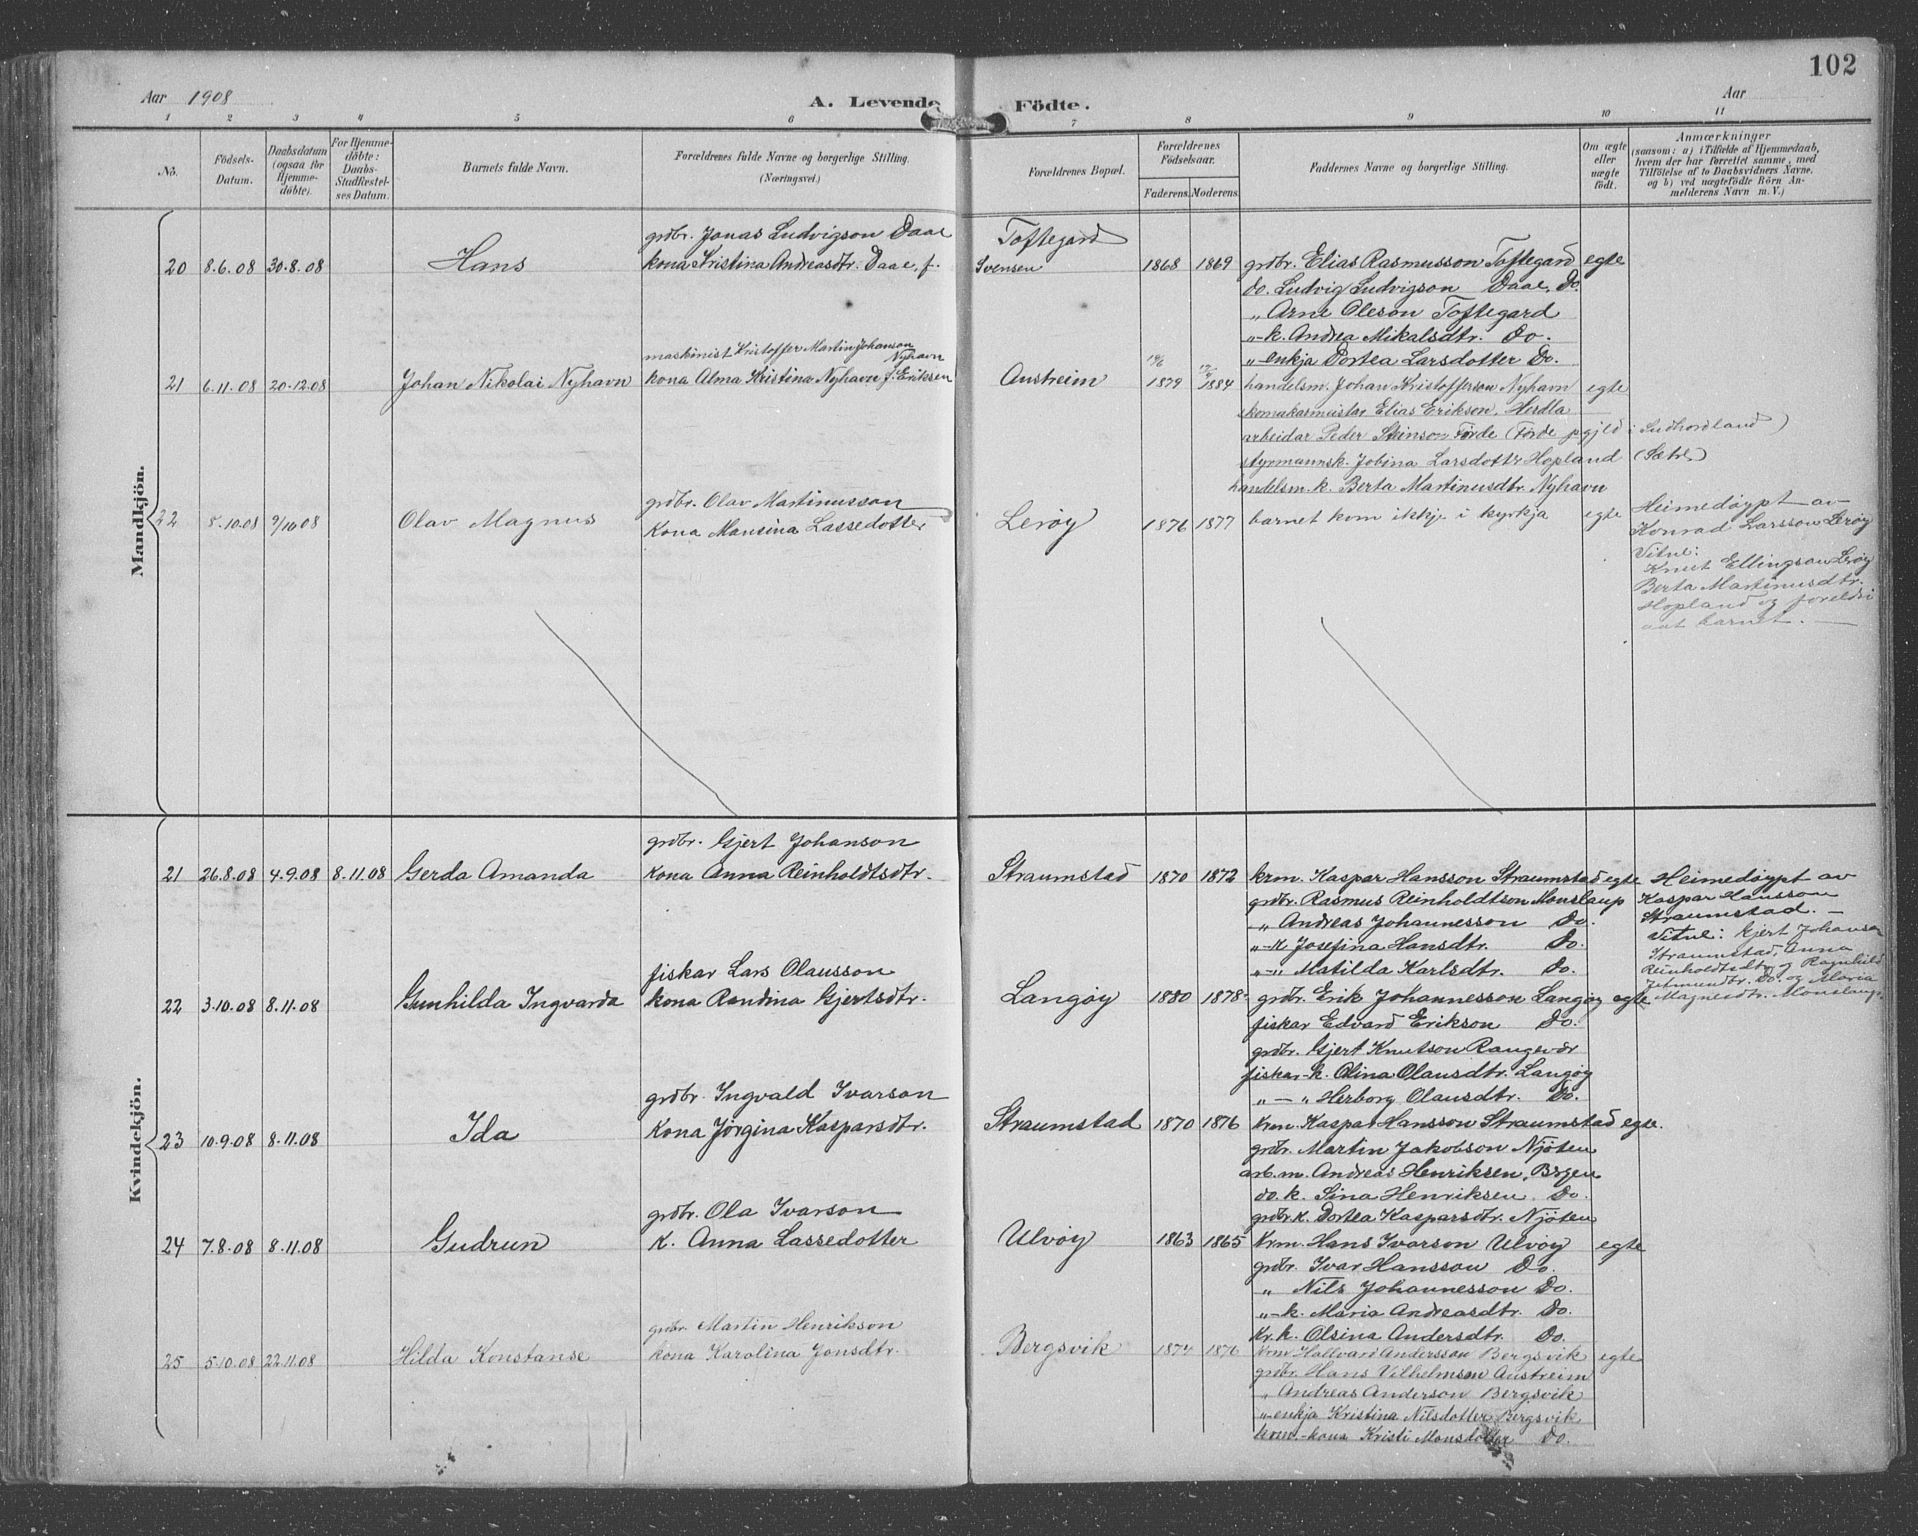 102
Aar 1908
A. Levende Födte.
Aar
1 2 3 4 5 6 7 8 9 10 11
No.
Födsels-Datum.
Daabsdatum (ogsaa for Hjemme-döbte).
For Hjemme-döbte: Daabs-Stadfæstel-ses Datum.
Barnets fulde Navn.
Forældrenes fulde Navne og borgerlige Stilling. (Næringsvei.)
Forældrenes Bopæl.
Forældrenes Födselsaar.
Faderens. Moderens.
Faddernes Navne og borgerlige Stilling.
Om ægte eller uægte födt.
Anmærkninger
(saasom: a) i Tilfælde af Hjemmedaab,
hvem der har forrettet samme, med
Tilföielse af to Daabsvidners Navne,
og b) ved uægtefödte Börn An-
melderens Navn m. V.)
Mandkjön.
grdbr. Jonas Ludvigson Daae Toftegard
20 8.6.08 30.8.08 Hans kona Kristina Andreasdtr. Daae, f. Svensen 1868 1869 grdbr. Elias Rasmusson Toftegard egte
do. Ludvig Ludvigson Daae, Do.
„ Arne Oleson Toftegard
„-k. Andrea Mikalsdtr. Do.
maskinist Kristoffer Martin Johanson Nyhavn
„-enkja Dortea Larsdotter Do.
21 6.11.08 20.12.08 Johan Nikolai Nyhavn kona Alma Kristina Nyhavn f. Eriksen Austreim 1879 1884 handelsm. Johan Kristofferson Nyhavn egte
skomakarmeistar Elias Erikson, Herdla
arbeidar Peder Steinson Förde (Förde p.gjeld i Sudhordland)
styrmannsk. Jobina Larsdottr Hopland (Sætre)
handelsm. k. Berta Martinusdtr. Nyhavn
grdbr. Olav Martinusson
22 8.10.08 9/10 08 Olav Magnus Kona Mansina Lassedotter Leröy 1876 1877 barnet kom ikkje i kyrkja egte
Heimedöypt av
Konrad Larsson Leröy
Vitne:
Knut Ellingson Leröy
Berta Martinusdtr.
Hopland og foreldri
aat barnet. —
Kvindekjön.
grdbr. Gjert Johanson
21 26.8.08 4.9.08 8.11.08 Gerda Amanda Kona Anna Reinholdtsdtr. Straumstad 1870 1872 krm. Kaspar Hansson Straumstad egte
grdbr. Rasmus Reinholdtson Monslaup
„ Andreas Johannesson Do.
„-k Josefina Hansdtr. Do.
„-„ Matilda Karlsdtr. Do.
Heimedöypt av
Kaspar Hansson
Straumstad. —
Vitne: Gjert Johanson
Straumstad, Anna
Reinholdtsdtr. og Ragnhild
Do. og Maria
Magnesdtr. Monslaup.
fiskar Lars Olausson
22 3.10.08 8.11.08 Gunhilda Ingvarda kona Randina Gjertsdtr. Langöy 1880 1878 grdbr. Erik Johannesson Langöy egte
fiskar Edvard Erikson Do.
grdbr. Gjert Knutson Rangevær
fiskar-k. Olina Olausdtr. Langöy
„ — „ Herborg Olausdtr. Do.
grdbr. Ingvald Ivarson
23 10.9.08 8.11.08 Ida Kona Jörgina Kasparsdtr. Straumstad 1870 1876 Krm. Kaspar Hansson Straumstad egte.
grdbr. Martin Jakobson Njöten
arb.m. Andreas Henriksen, Brgen
do. k. Sina Henriksen Do.
grdbr. k. Dortea Kasparsdtr. Njöten
grdbr. Ola Ivarson
24 7.8.08 8.11.08 Gudrun K. Anna Lassedotter Ulvöy 1863 1865 Krm. Hans Ivarson Ulvöy egte
grdbr. Ivar Hansson Do.
„ Nils Johannesson Do.
„-k. Maria Andreasdtr. Do.
Kr. k. Olsina Andersdtr. Do.
grdbr. Martin Henrikson
25 5.10.08 22.11.08 Hilda Konstanse kona Karolina Jonsdtr. Bergsvik 1874 1876 Krm. Hallvard Andersson Bergsvik egte
grdbr. Hans Vilhelmsen Austreim
„ Andreas Anderson Bergsvik
„-enkja Kristina Nilsdotter Bergsvik
krm.-kona Kristi Monsdotter Do.